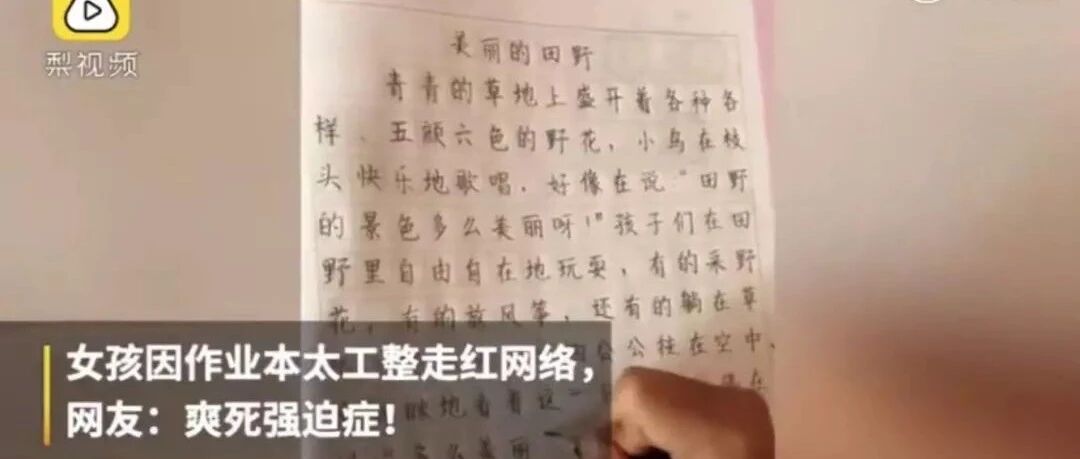 梨视频
美丽的田野
青青的草地上盛开着各种各
样、五颜六色的野花，小鸟在枝
头快乐地歌唱，好像在说："田野
的景色多么美丽呀！"孩子们在田
野里自由自在地玩耍，有的采野
花，有的放风筝，还有的躺在草
公公挂在空中，
眯地看着这
多么美丽
女孩因作业本太工整走红网络，
网友：爽死强迫症！